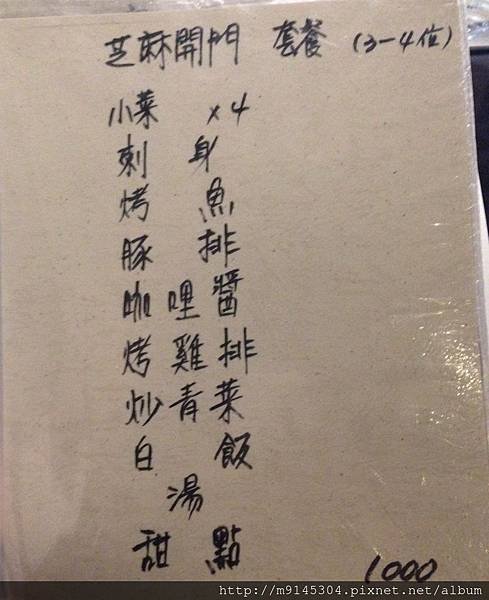 芝麻開門 套餐 (3-4位)
小菜 x4
刺身
烤魚
豚排
咖哩醬
烤雞排
炒青菜
白飯
湯
甜點
1000
http://m9145304.pixnet.net/album